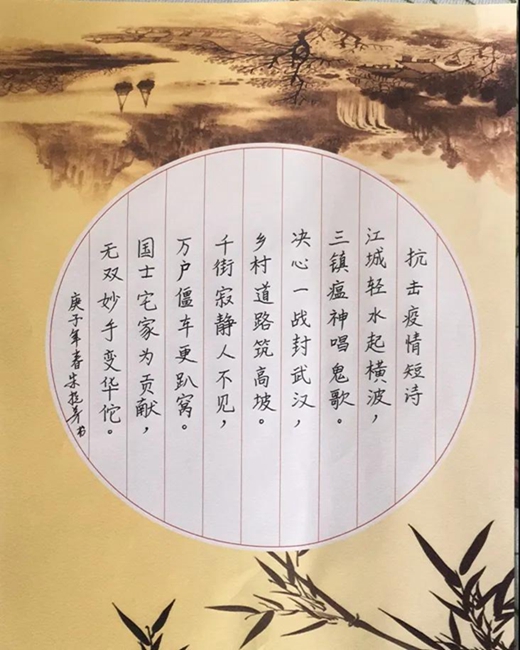 抗击疫情短诗
江城轻水起横波，
三镇瘟神唱鬼歌。
决心一战封武汉，
乡村道路筑高坡。
千街寂静人不见，
万户僵车更趴窝。
国士宅家为贡献，
无双妙手变华佗。
庚子年春朱 书